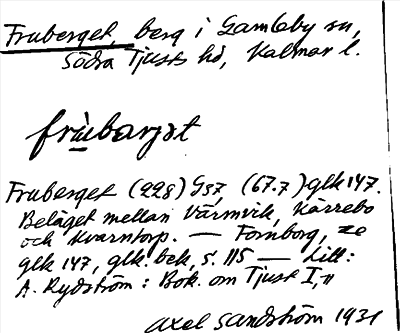 Fruberget, berg i Gamleby sn,
Södra Tjusts hd, Kalmar l.
frùbarjət
Fruberget (228) G57 (67.7) glk 147.
Beläget mellan Värmvik, Kärrebo
och Kvarntorp. — Fornborg, se
glk 147, glk. bek, s. 115 — Litt:
A. Rydström: Bok. om Tjust I,
Axel Sandström 1931